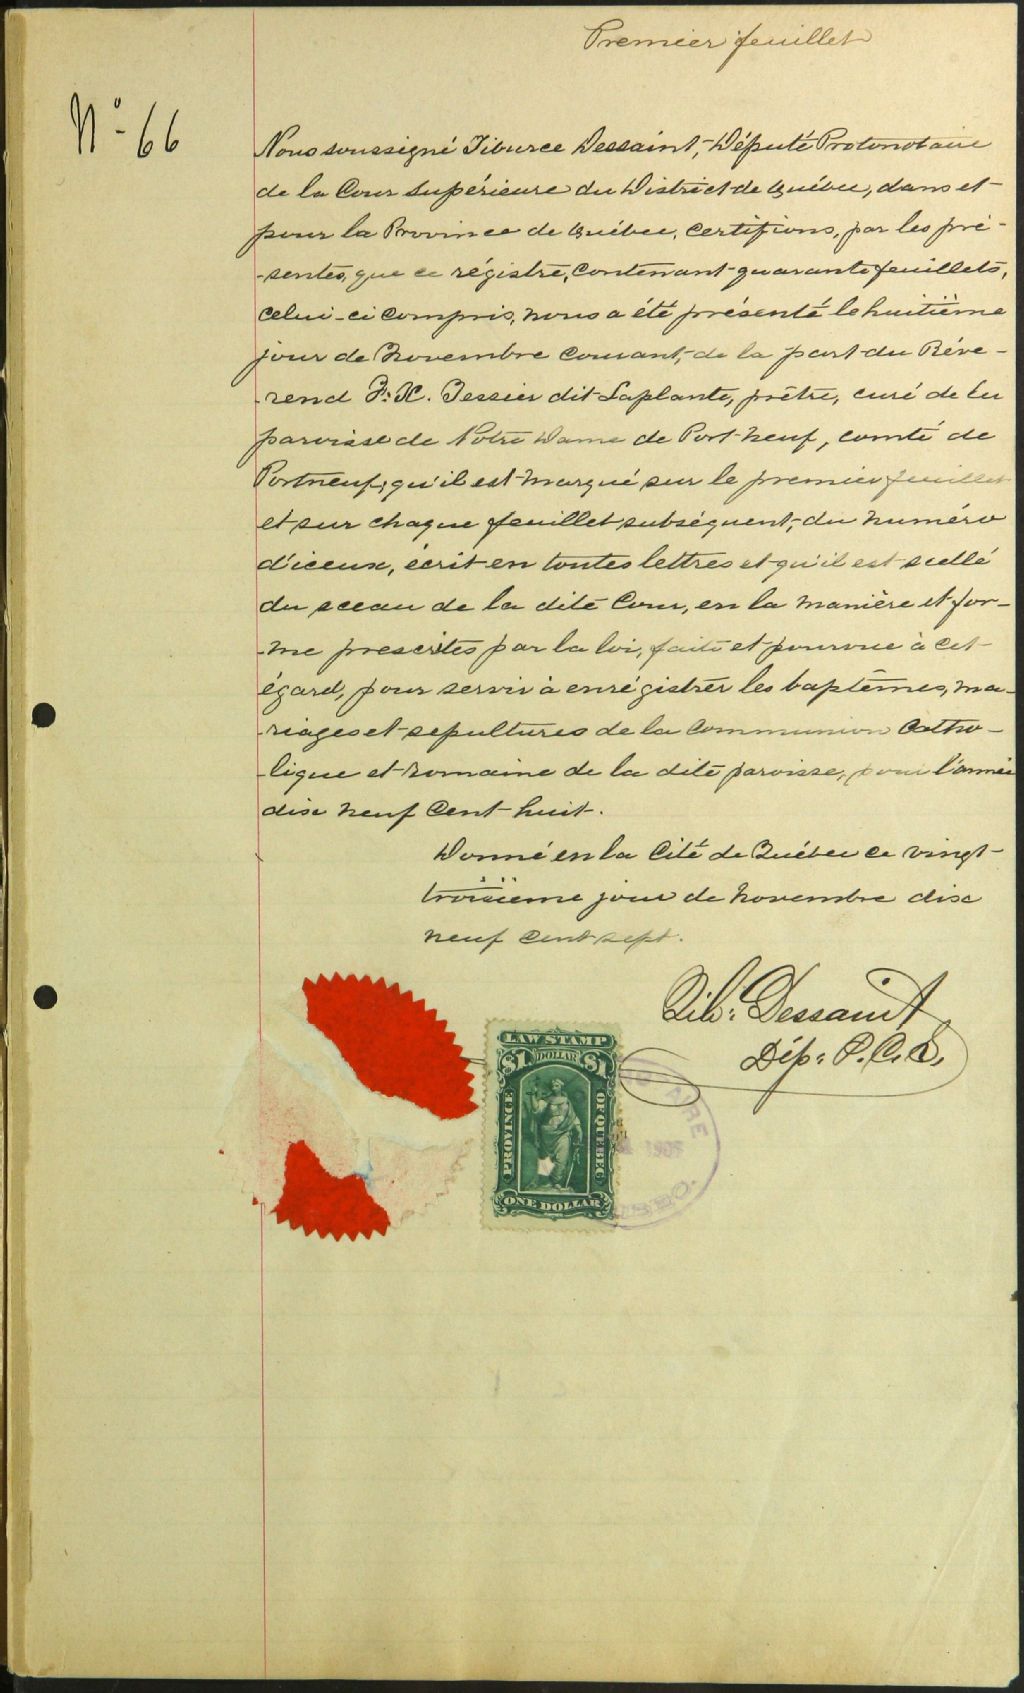 Premier feuillet
No 66
Nous soussigné Tiburce Dessaint, Député Protonotaire
de la Cour Supérieure du District de Québec, dans et
pour la Province de Québec, certifions, par les pré-
-sentes, que ce régistre, contenant quarante feuillets,
celui-ci compris, nous a été présenté le huitième
jour de Novembre courant, de la part du Révé-
-rend F. X. Tessier dit Laplante, prêtre, curé de la
paroisse de Notre Dame de Portneuf, comté de
Portneuf; qu'il est marqué sur le premier feuillet
et sur chaque feuillet subséquent, du numéro
d'iceux, écrit en toutes lettres et qu'il est scellé
du sceau de la dite Cour, en la manière et for-
-me prescrites par la loi, faite et pourvue à cet
égard, pour servir à enrégistrer les baptêmes, ma-
-riages et sepultures de la Communion Catho-
-lique et Romaine de la dite paroisse, pour l'année
dix neuf cent huit.
Donné en la Cité de Québec ce vingt-
troisième jour de Novembre dix
neuf cent sept.
Tib: Dessaint
Dép: P. C. S.
LAW STAMP
$1 DOLLAR $1
PROVINCE
OF QUEBEC
ONE DOLLAR